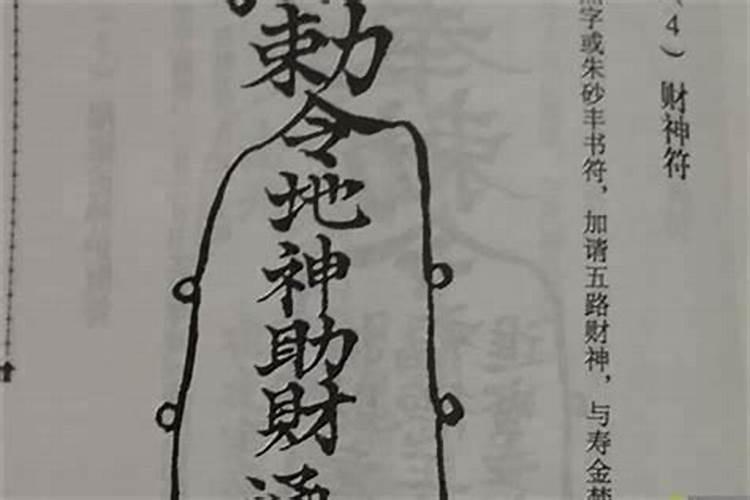 （4）财神符
字或朱砂丰书符，加请五路财神，与寿金
勅令地神助财通